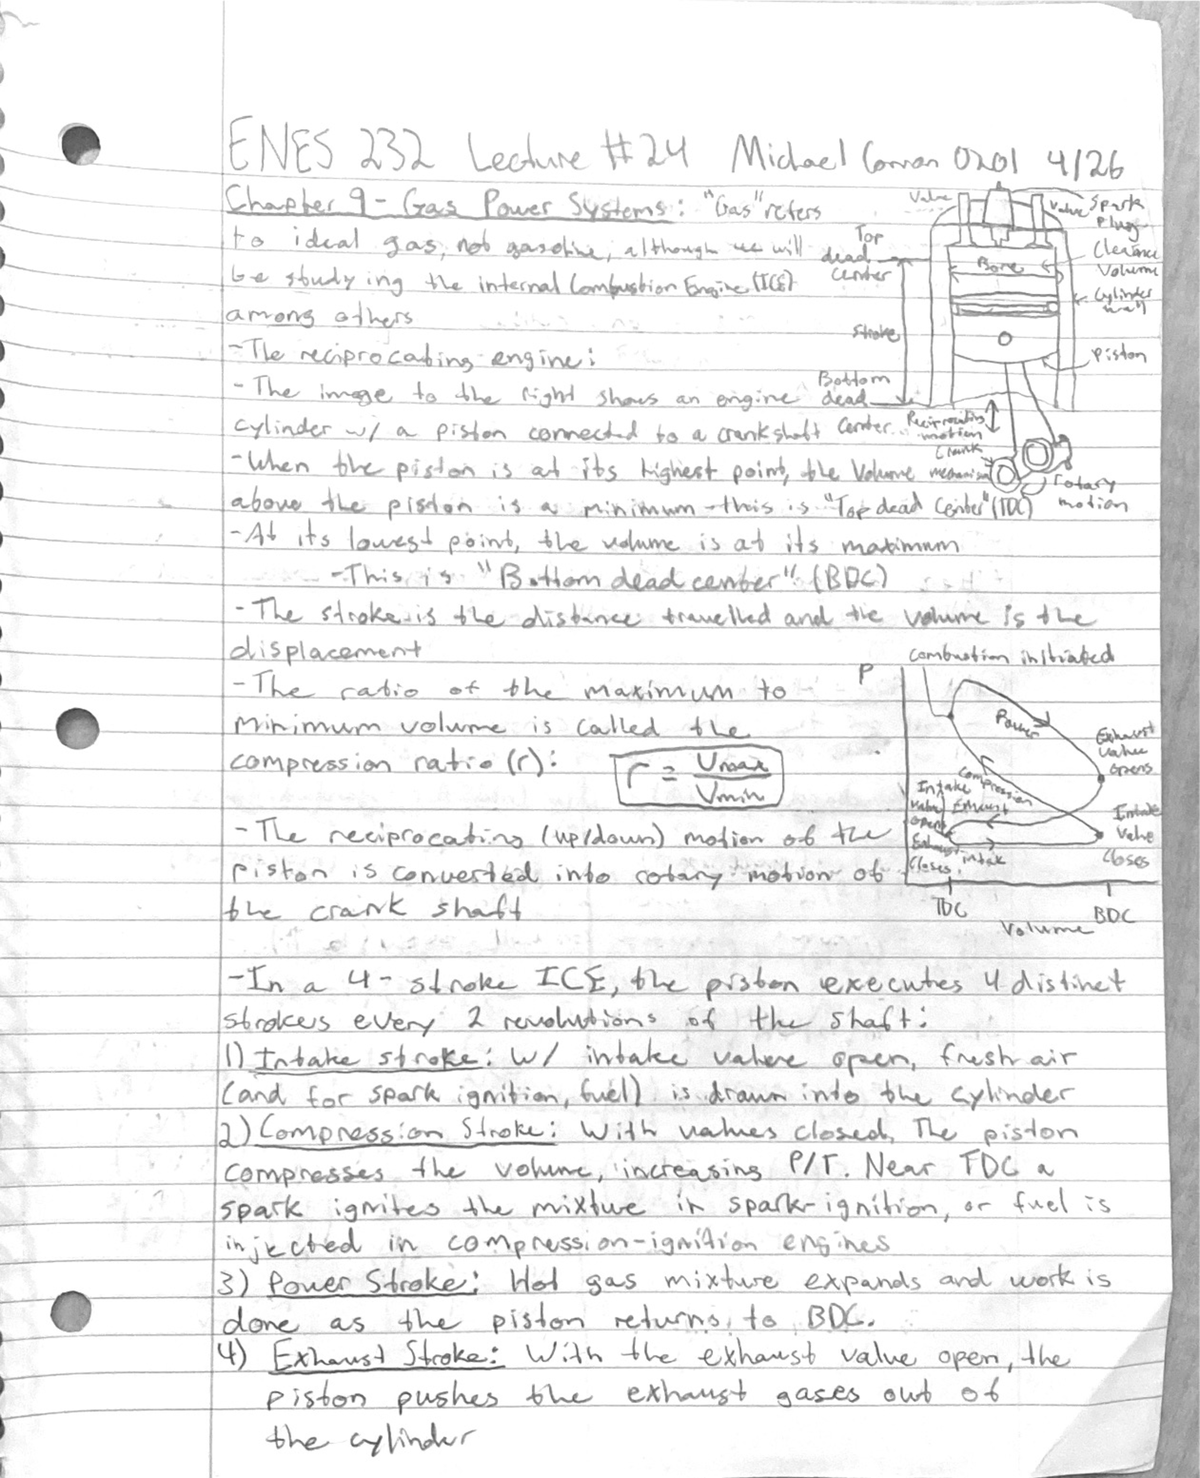 ENES 232 Lecture #24 Michael Conran 0201 4/26
Chapter 9 - Gas Power Systems: "Gas" refers
to ideal gas, not gasoline, although we will
be studying the internal Combustion Engine (ICE)
among others
- The reciprocating engine:
- The image to the right shows an engine
cylinder w/ a piston connected to a crankshaft
- When the piston is at its highest point, the Volume
above the piston is a minimum - this is "Top dead Center" (TDC)
- At its lowest point, the volume is at its maximum
- This is "Bottom dead center" (BDC)
- The stroke is the distance travelled and the volume is the
displacement
- The ratio of the maximum to
minimum volume is called the
compression ratio (r): r = Vmax / Vmin
- The reciprocating (up/down) motion of the
piston is converted into rotary motion of
the crank shaft
- In a 4-stroke ICE, the piston executes 4 distinct
strokes every 2 revolutions of the shaft:
1) Intake stroke: W/ intake valve open, fresh air
(and for spark ignition, fuel) is drawn into the cylinder
2) Compression Stroke: With valves closed, The piston
compresses the volume, increasing P/T. Near TDC a
spark ignites the mixture in spark-ignition, or fuel is
injected in compression-ignition engines
3) Power Stroke: Hot gas mixture expands and work is
done as the piston returns to BDC.
4) Exhaust Stroke: With the exhaust valve open, the
piston pushes the exhaust gases out of
the cylinder
Valve
Valve
Spark
Plug
Top
dead
center
Bore
Clearance
Volume
Cylinder
wall
Stroke
Piston
Bottom
dead
Center
Reciprocating
motion
Crank
mechanism
Rotary
motion
P
Combustion initiated
Power
Exhaust
valve
opens
Compression
Intake
valve
opens
Exhaust
Intake
valve
closes
Exhaust
closes
intake
TDC
BDC
Volume